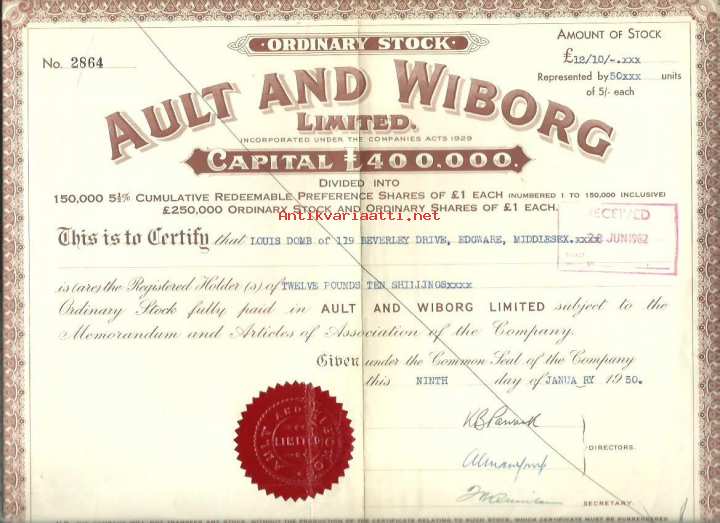 ORDINARY STOCK
No. 2864
AMOUNT OF STOCK
£12/10/-.xxx
Represented by 50xxx units
of 5/- each
AULT AND WIBORG
LIMITED.
INCORPORATED UNDER THE COMPANIES ACTS 1929
CAPITAL £400.000.
DIVIDED INTO
150,000 5½% CUMULATIVE REDEEMABLE PREFERENCE SHARES OF £1 EACH (NUMBERED 1 TO 150,000 INCLUSIVE)
£250,000 ORDINARY STOCK AND ORDINARY SHARES OF £1 EACH.
Antikvariaatti.net
RECEIVED
28 JUN 1962
This is to Certify that LOUIS DOMB of 119 BEVERLEY DRIVE, EDGWARE, MIDDLESEX.xxxx
is (are) the Registered Holder (s) of TWELVE POUNDS TEN SHILLINGSxxxx
Ordinary Stock fully paid in AULT AND WIBORG LIMITED subject to the
Memorandum and Articles of Association of the Company.
Given under the Common Seal of the Company
this NINTH day of JANUARY 1950.
AULT AND WIBORG
LIMITED
DIRECTORS.
SECRETARY.